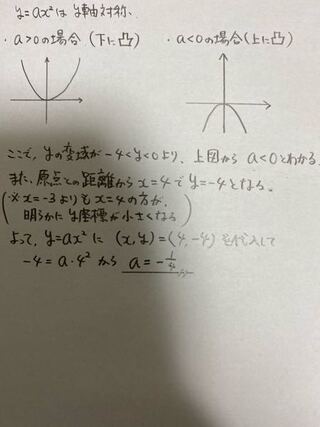 y=ax²は y軸対称、
・a>0の場合(下に凸)
・a<0の場合(上に凸)
ここで、yの変域が -4<y<0より、上図から a<0とわかる。
また、原点との距離から x=4でy=-4となる。
(※x=-3よりも x=4の方が、
明らかにy座標が小さくなる)
よって、y=ax²に (x,y)=(4,-4)を代入して
-4=a・4²から a=-1/4